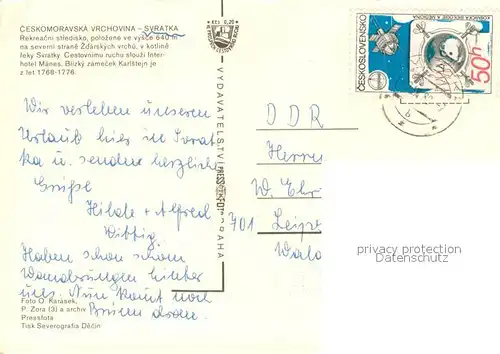 ČESKOMORAVSKÁ VRCHOVINA – SVRATKA
Rekreační středisko, položené ve výšce 640 m
na severní straně Žďárských vrchů, v kotlině
řeky Svratky. Cestovnímu ruchu slouží Inter-
hotel Mánes. Blízký zámeček Karlštejn je
z let 1768-1776.
Wir verleben unseren
Urlaub hier in Svrat-
ka u. senden herzliche
Grüße
Hilde + Alfred
Wittig
Haben schon schöne
Wanderungen hinter
uns. Nun kommt noch
Brünn dran.
Foto O. Karásek,
P. Zora (3) a archiv
Pressfota
Tisk Severografia Děčín
VYDAVATELSTVÍ PRESSFOTO PRAHA
KČS 0,20
ČESKOSLOVENSKO
KOSMICKÁ BIOLOGIE A MEDICÍNA
50h
DDR
Herrn
W. Ehr
701 Leipz
privacy protection
Datenschutz